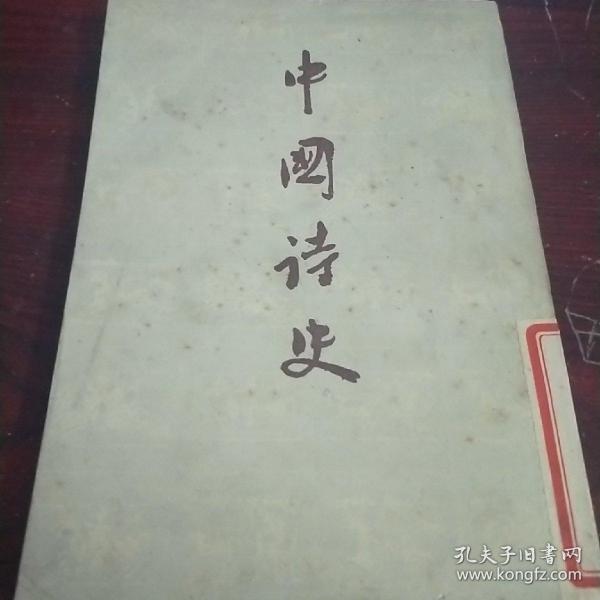 中國诗史
孔夫子旧書网
www.kongfz.com